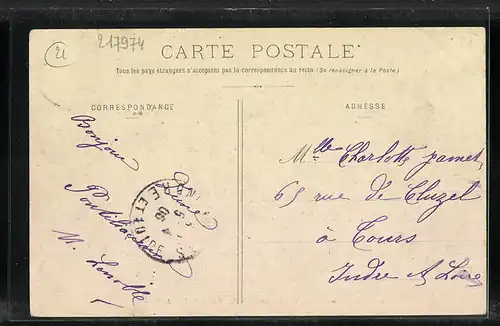 21
217974
CARTE POSTALE
Tous les pays étrangers n'acceptent pas la correspondance au recto (Se renseigner à la Poste)
CORRESPONDANCE
ADRESSE
Bonjour
M.
Mlle Charlotte
65 rue de Cluzel
à Tours
Indre & Loire
ET LOIRE